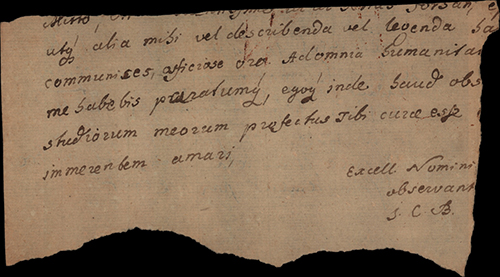 utq́ alia mihi vel describenda vel legenda
communices, officiose oro. Ad omnia humanita
me habebis paratumq́, egoq́ inde haud obs
studiorum meorum profectus Tibi curæ esse
immerentem amari,
Excell Nomini
observant
S. C. B.